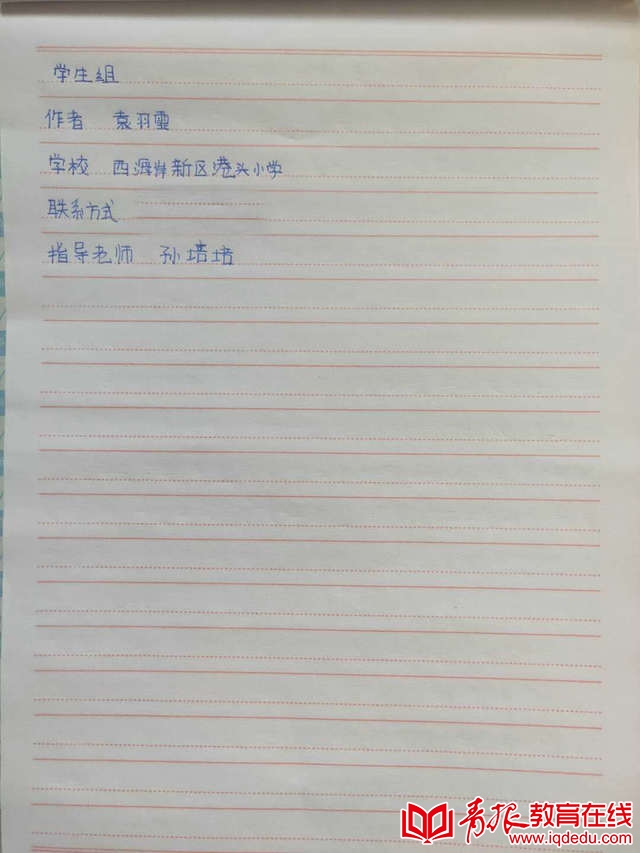 学生组
作者 袁羽霏
学校 西海岸新区港头小学
联系方式
指导老师 孙培培
青报教育在线
www.iqdedu.com